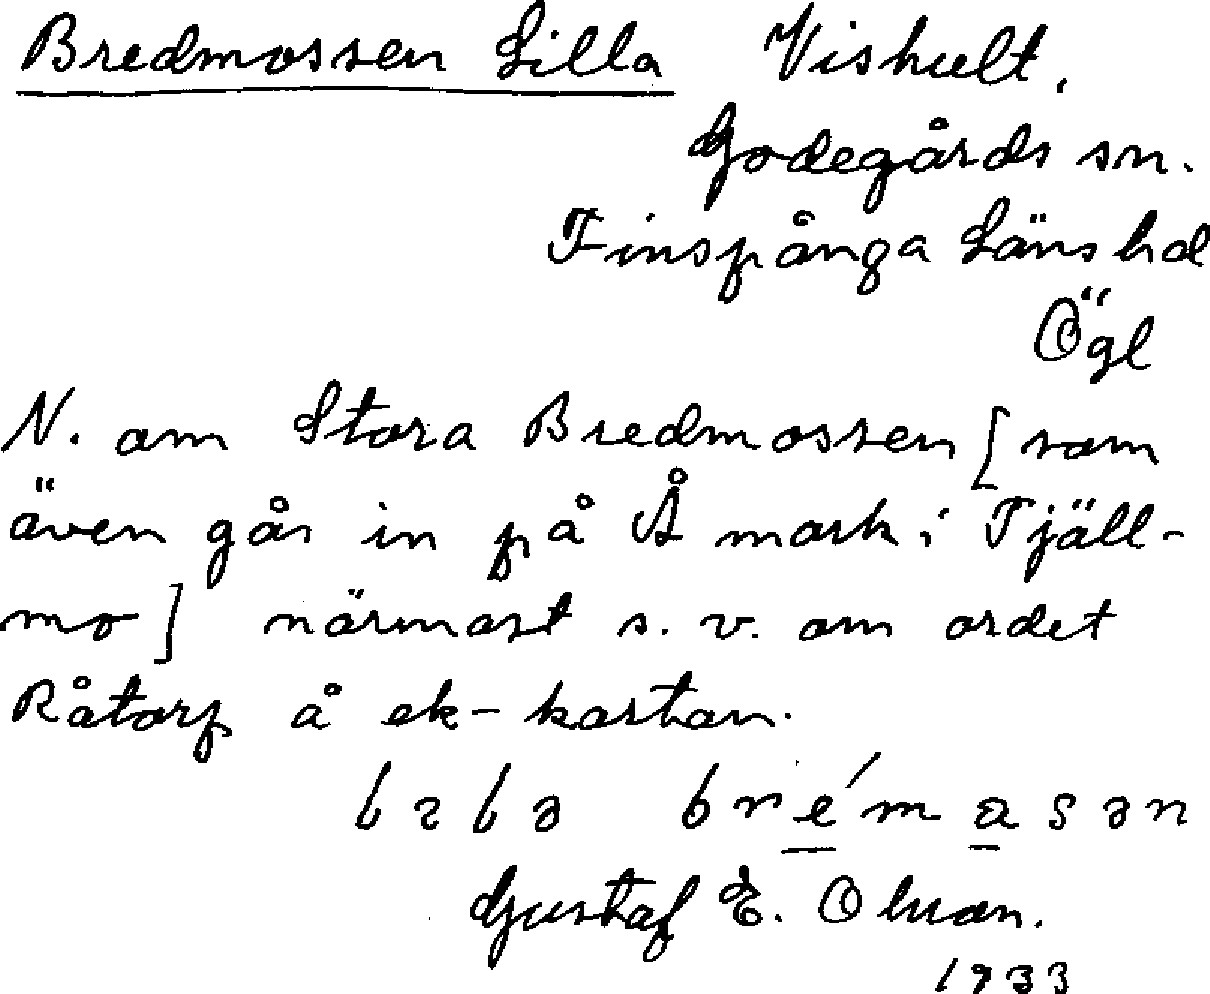 Bredmossen Lilla Vishult.
Godegårds sn.
Finspånga Läns hd
Ögl
N. om Stora Bredmossen [som
även går in på Å mark i Tjäll-
mo] närmast s. v. om ordet
Råtorp å ek-kartan.
brémasən
Gustaf E. Olsson.
1933